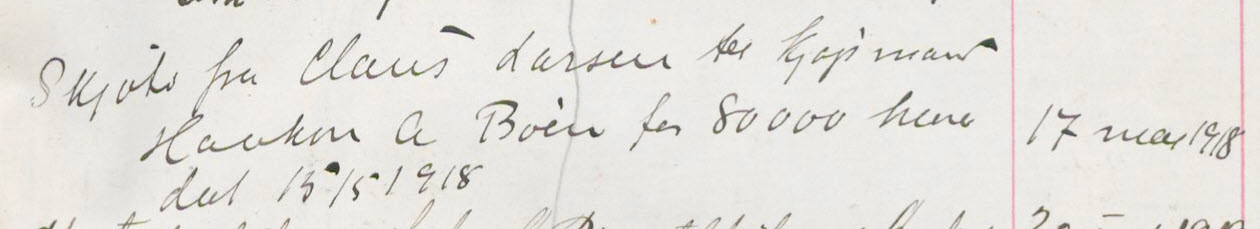 Skjöte fra Claus Larsen til Kjøpmand
Haakon A Boën for 80000 kroner 17 mai 1918
dat 15/5 1918